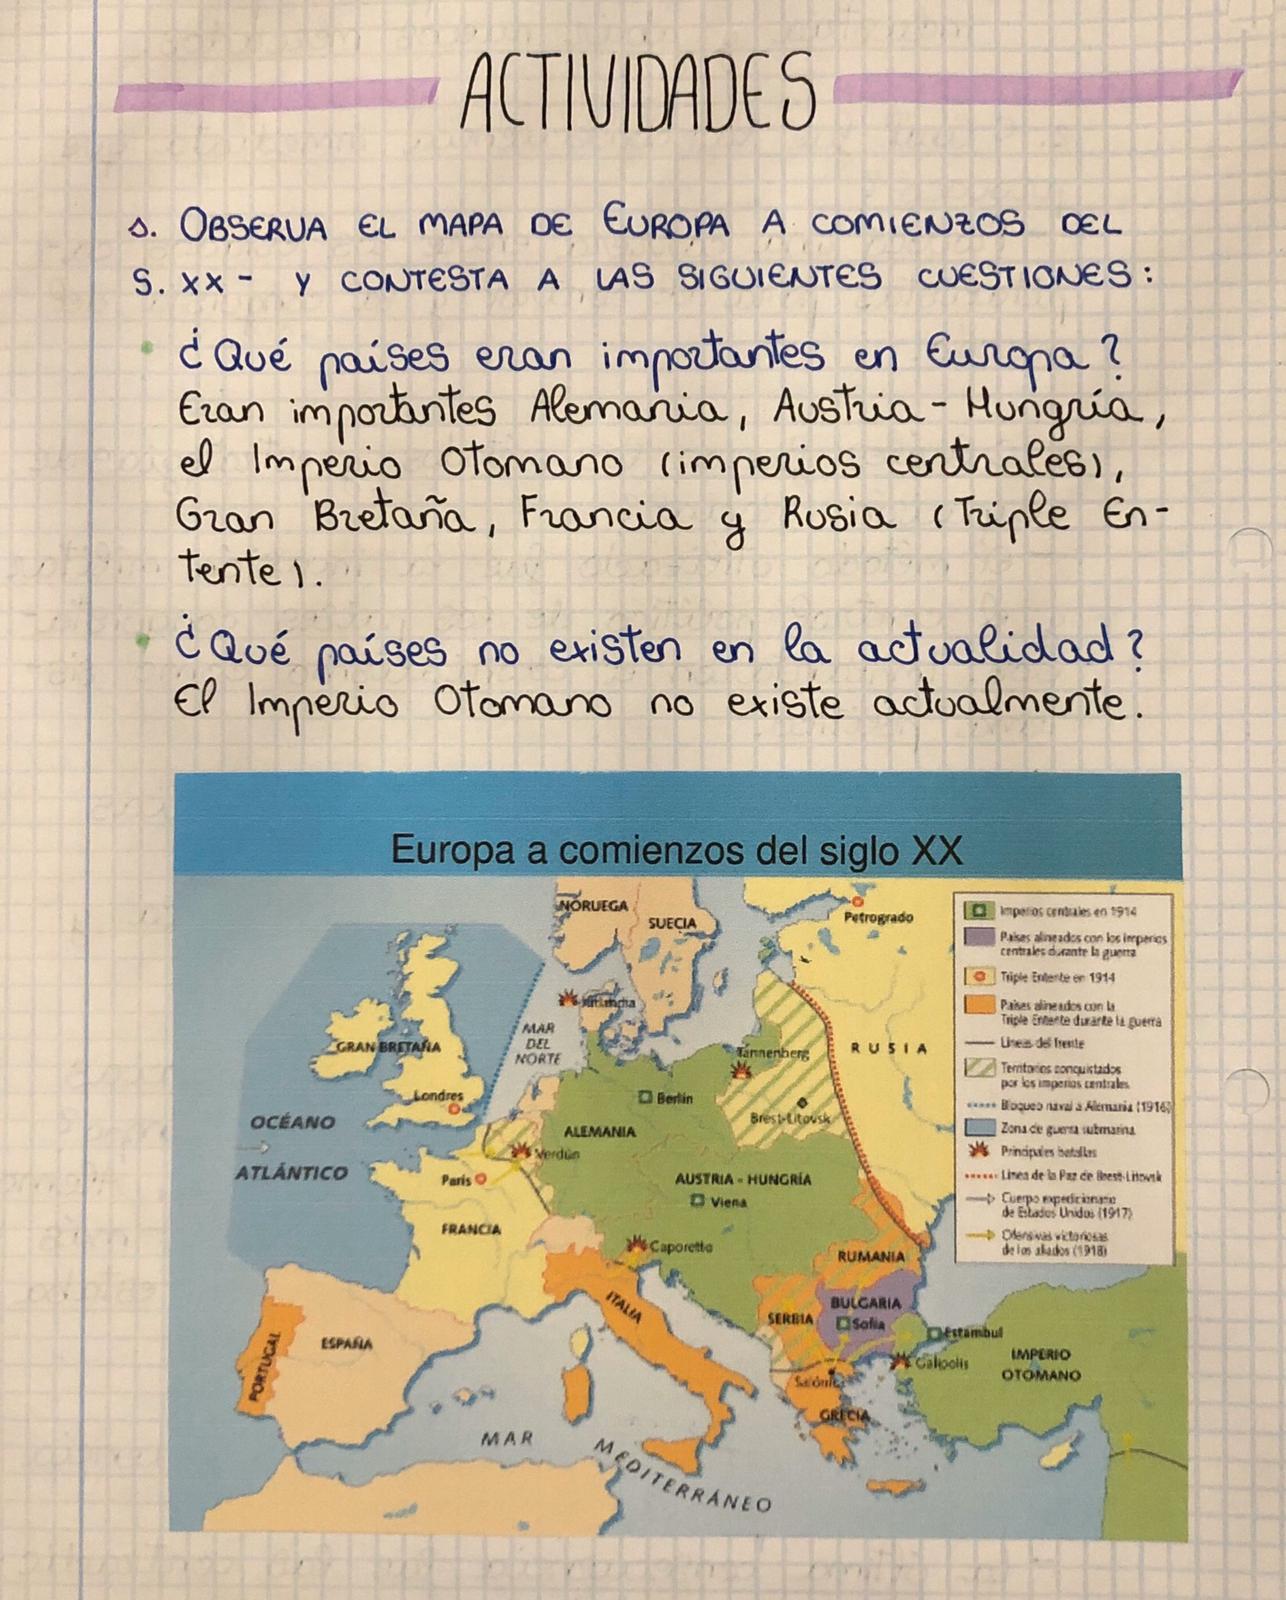 ACTIVIDADES
1. OBSERVA EL MAPA DE EUROPA A COMIENZOS DEL
S. XX - Y CONTESTA A LAS SIGUIENTES CUESTIONES:
¿Qué países eran importantes en Europa?
Eran importantes Alemania, Austria - Hungría,
el Imperio Otomano (imperios centrales),
Gran Bretaña, Francia y Rusia (Triple En-
tente).
¿Qué países no existen en la actualidad?
El Imperio Otomano no existe actualmente.
Europa a comienzos del siglo XX
NORUEGA
SUECIA
Petrogrado
Jutlandia
MAR
DEL
NORTE
GRAN BRETAÑA
Londres
Tannenberg
RUSIA
Berlín
Brest-Litovsk
OCÉANO
ATLÁNTICO
ALEMANIA
Verdún
París
AUSTRIA - HUNGRÍA
Viena
FRANCIA
Caporetto
RUMANIA
ITALIA
BULGARIA
SERBIA
Sofía
Estambul
PORTUGAL
ESPAÑA
Galípolis
IMPERIO
OTOMANO
Salónica
GRECIA
MAR
MEDITERRÁNEO
Imperios centrales en 1914
Países alineados con los imperios
centrales durante la guerra
Triple Entente en 1914
Países alineados con la
Triple Entente durante la guerra
Líneas del frente
Territorios conquistados
por los imperios centrales
Bloqueo naval a Alemania (1916)
Zona de guerra submarina
Principales batallas
Línea de la Paz de Brest-Litovsk
Cuerpo expedicionario
de Estados Unidos (1917)
Ofensivas victoriosas
de los aliados (1918)